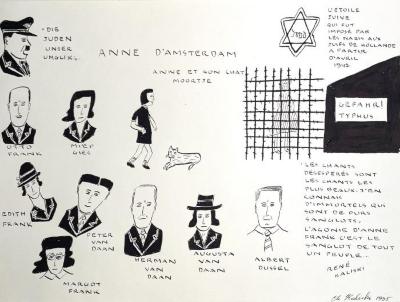 "DIE
JUDEN
UNSER
UNGLÜCK"
ANNE D'AMSTERDAM
ANNE ET SON CHAT
MOORTJE
JOOD
L'ETOILE
JUIVE
QUI FUT
IMPOSÉE PAR
LES NAZIS AUX
JUIFS DE HOLLANDE
A PARTIR
D'AVRIL
1942
GEFAHR!
TYPHUS
OTTO
FRANK
MIEP
GIES
EDITH
FRANK
PETER
VAN
DAAN
MARGOT FRANK
HERMAN
VAN
DAAN
AUGUSTA
VAN
DAAN
ALBERT
DUSSEL
"LES CHANTS
DÉSESPÉRÉS SONT
LES CHANTS LES
PLUS BEAUX. J'EN
CONNAIS
D'IMMORTELS QUI
SONT DE PURS
SANGLOTS,
L'AGONIE D'ANNE
FRANK C'EST LE
SANGLOT DE TOUT
UN PEUPLE...
RENÉ
KALISKI
Kalisky 1995